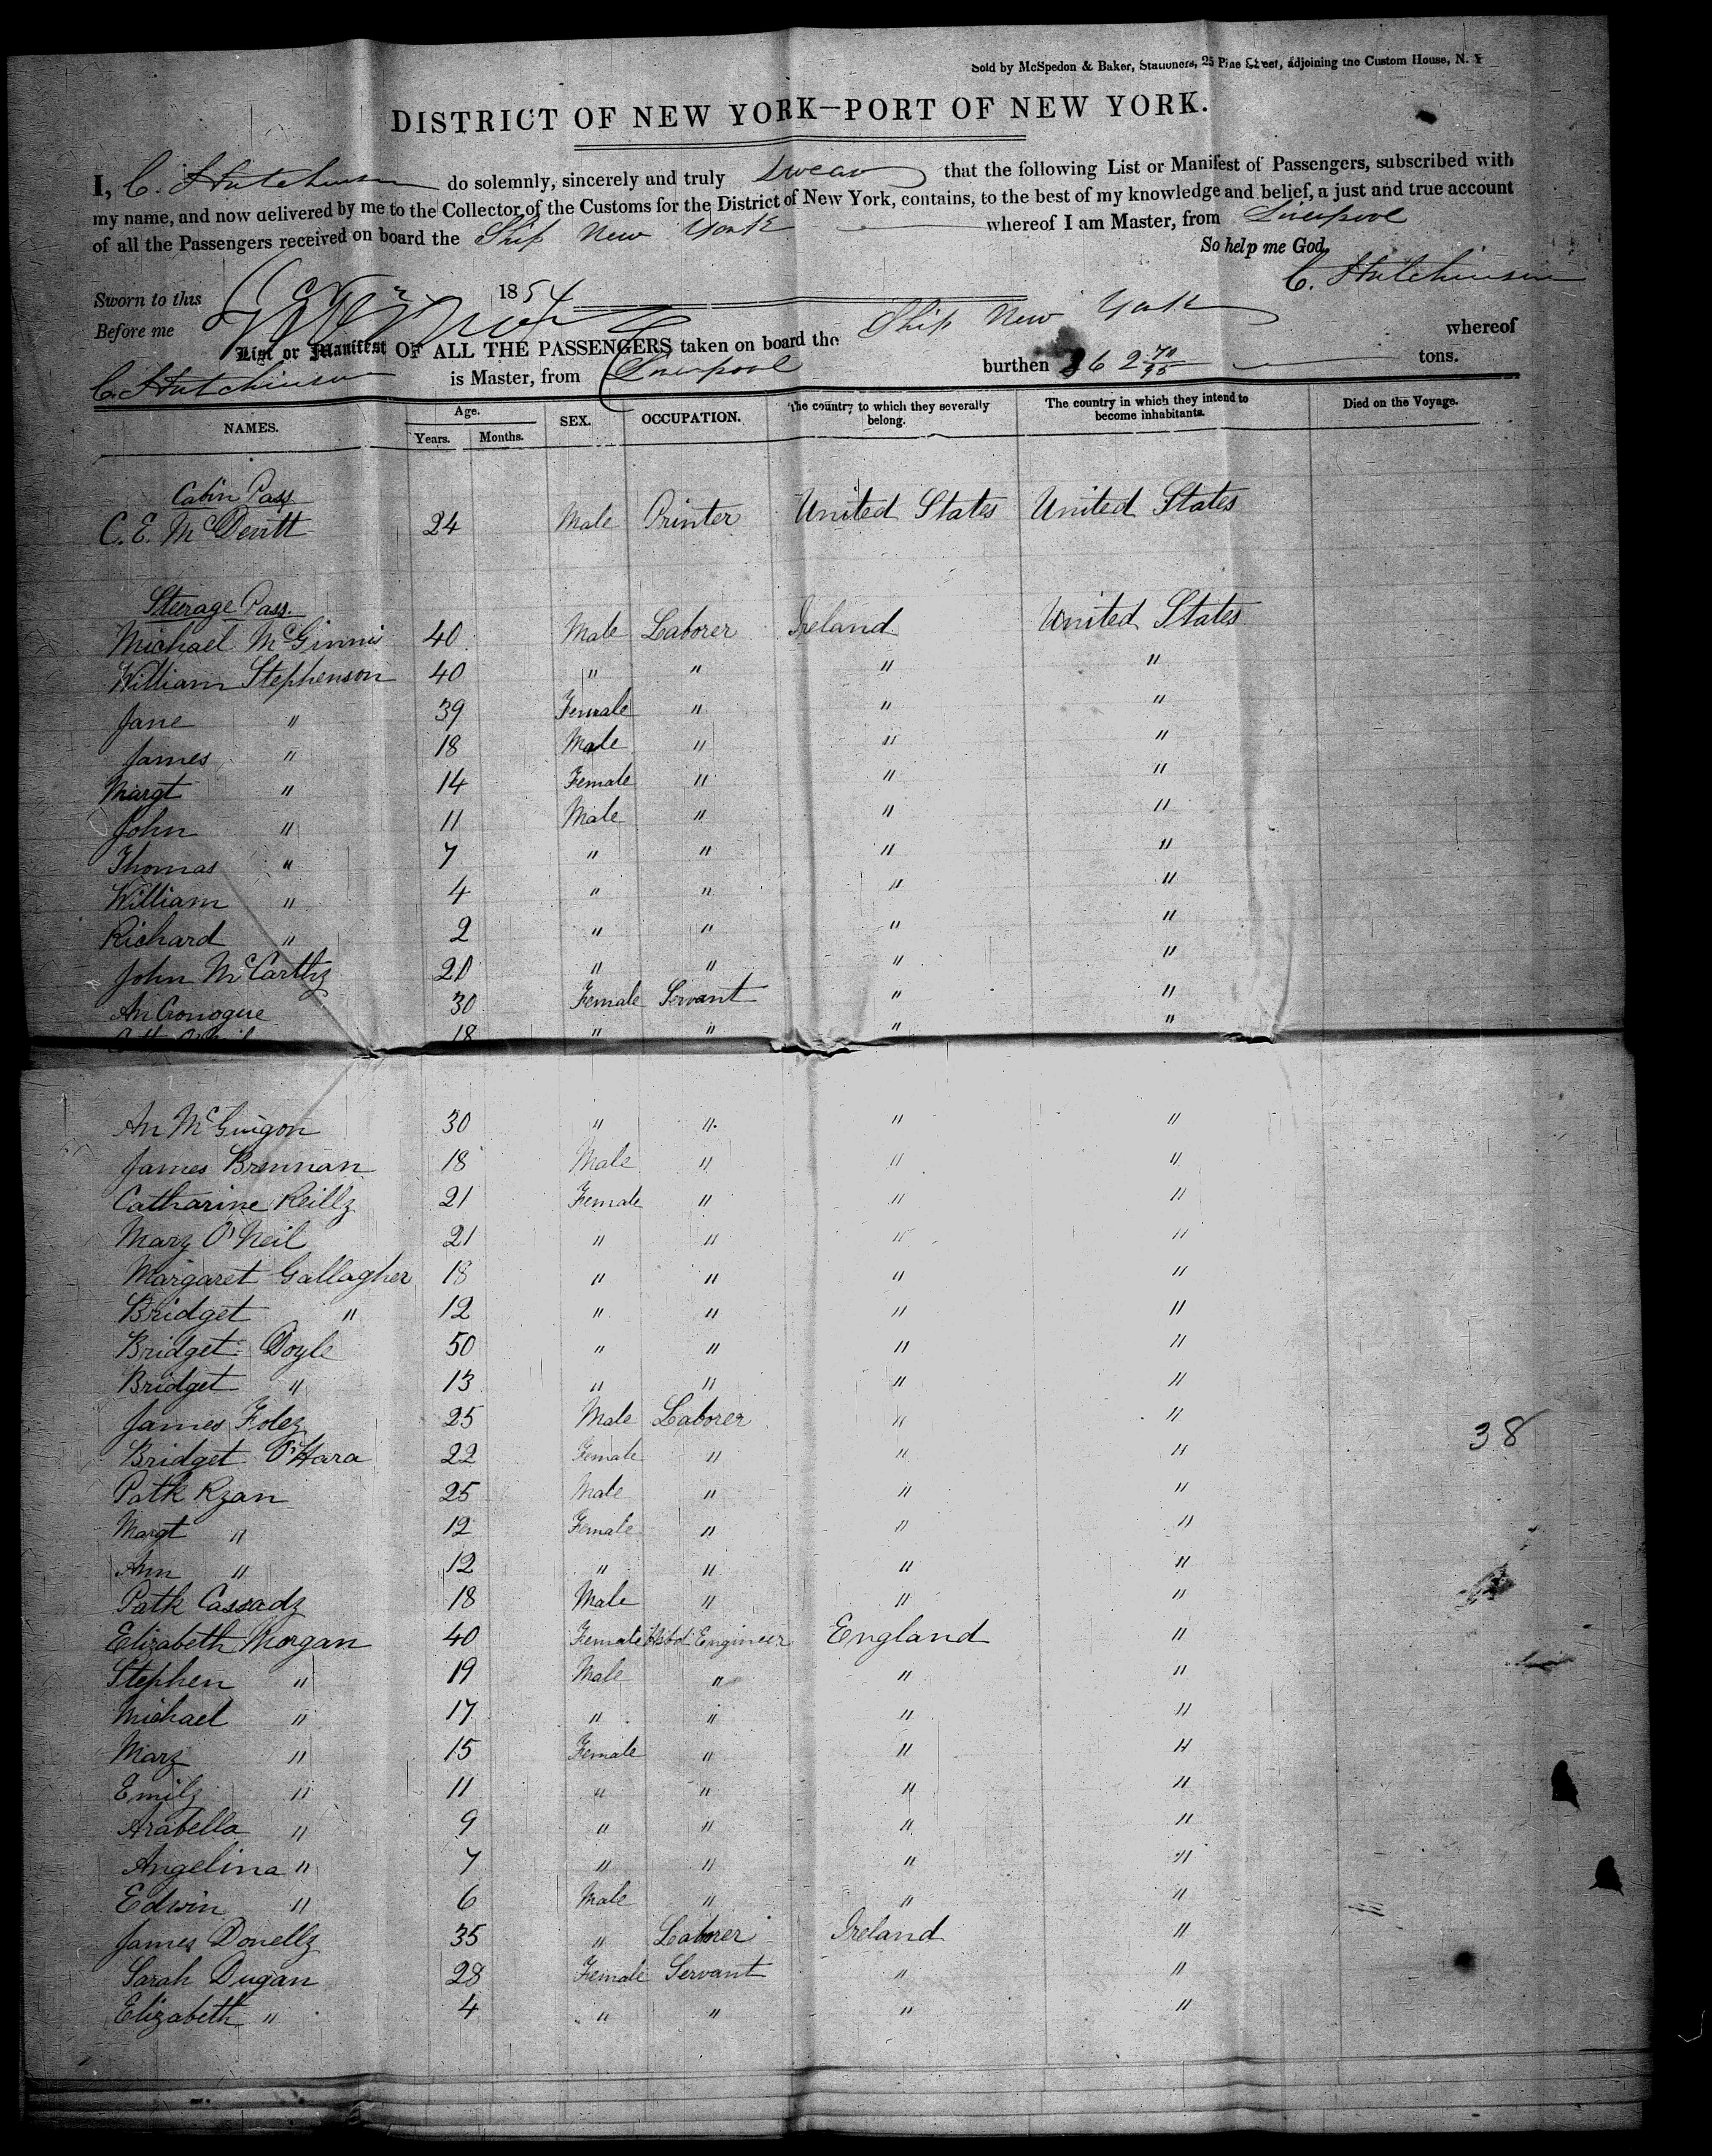 Sold by McSpedon & Baker, Stationers, 25 Pine Street, adjoining the Custom House, N. Y
DISTRICT OF NEW YORK—PORT OF NEW YORK.
I, C. Hutchinson do solemnly, sincerely and truly swear that the following List or Manifest of Passengers, subscribed with
my name, and now delivered by me to the Collector of the Customs for the District of New York, contains, to the best of my knowledge and belief, a just and true account
of all the Passengers received on board the Ship New York whereof I am Master, from Liverpool
So help me God,
C. Hutchinson
Sworn to this 1854
Before me
List or Manifest OF ALL THE PASSENGERS taken on board the Ship New York whereof
C. Hutchinson is Master, from Liverpool burthen 862 70/95 tons.
NAMES. Age. Years. Months. SEX. OCCUPATION. The country to which they severally belong. The country in which they intend to become inhabitants. Died on the Voyage.
Cabin Pass
C. E. McDevitt 24 Male Printer United States United States
Steerage Pass.
Michael McGinnis 40 Male Laborer Ireland United States
William Stephenson 40 " " " "
Jane " 39 Female " " "
James " 18 Male " " "
Margt " 14 Female " " "
John " 11 Male " " "
Thomas " 7 " " " "
William " 4 " " " "
Richard " 2 " " " "
John McCarthy 20 " " " "
An Cronogue 30 Female Servant " "
18 " " " "
An McGuigon 30 " " " "
James Brennan 18 Male " " "
Catharine Reilly 21 Female " " "
Mary O'Neil 21 " " " "
Margaret Gallagher 18 " " " "
Bridget " 12 " " " "
Bridget Doyle 50 " " " "
Bridget " 13 " " " "
James Foley 25 Male Laborer " "
38
Bridget O'Hara 22 Female " " "
Patk Ryan 25 Male " " "
Margt " 12 Female " " "
Ann " 12 " " " "
Patk Cassady 18 Male " " "
Elizabeth Morgan 40 Female Hsbd Engineer England "
Stephen " 19 Male " " "
Michael " 17 " " " "
Mary " 15 Female " " "
Emily " 11 " " " "
Arabella " 9 " " " "
Angelina " 7 " " " "
Edwin " 6 Male " " "
James Donelly 35 " Laborer Ireland "
Sarah Dugan 28 Female Servant " "
Elizabeth " 4 " " " "